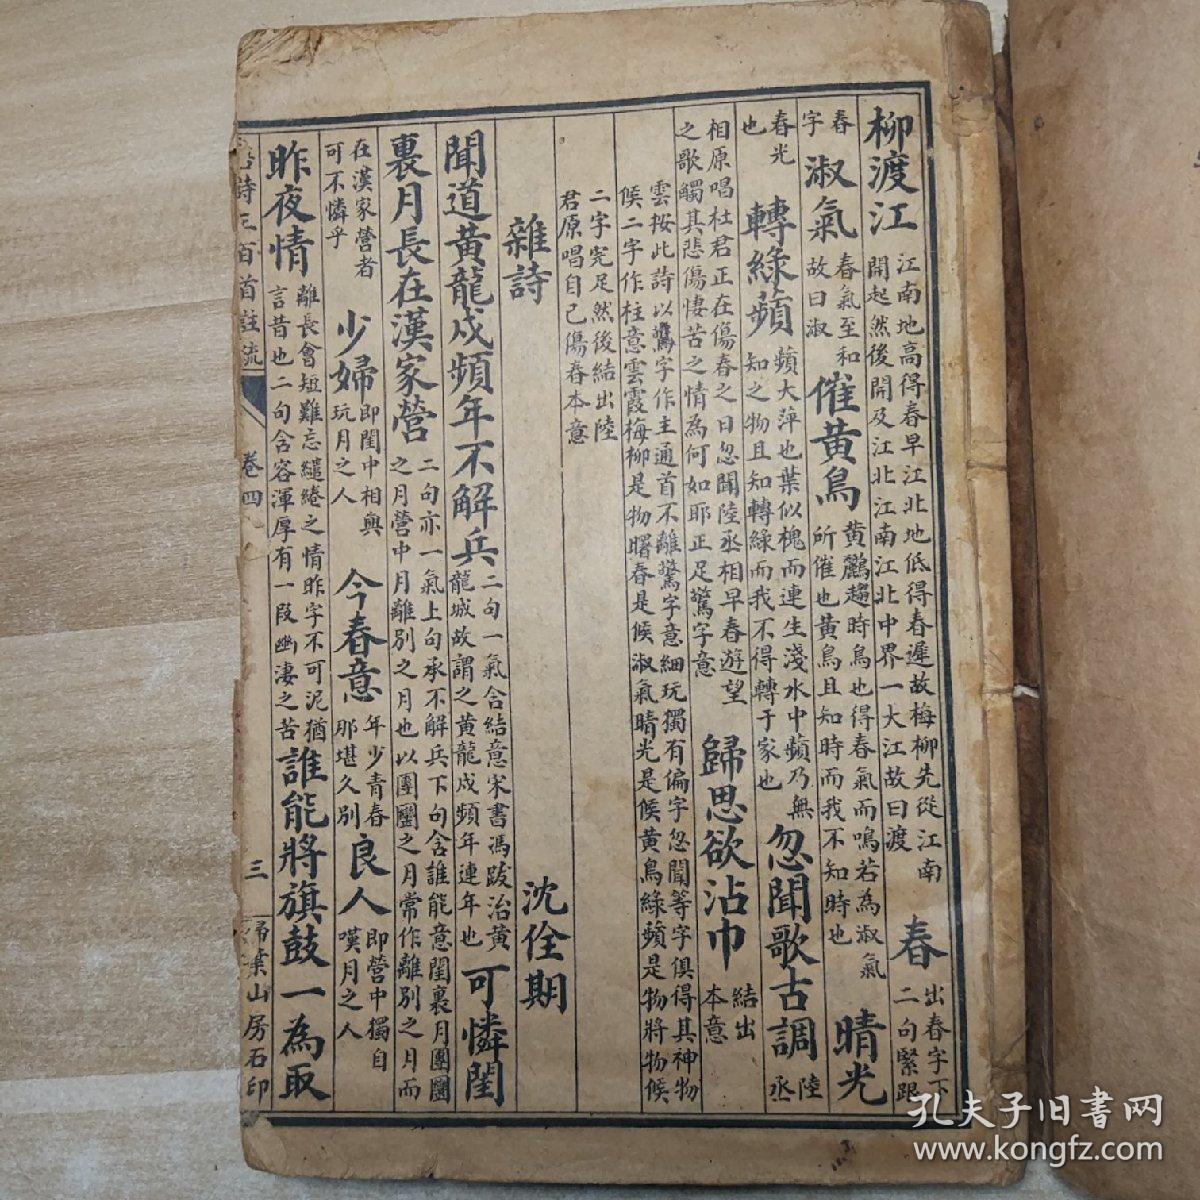 柳渡江 江南地高得春早江北地低得春遲故梅柳先從江南開起然後開及江北江南江北中界一大江故曰渡 春 出春字下二句緊跟
春字 淑氣 春氣至和故曰淑 催黃鳥 黃鸝趨時鳥也得春氣而鳴若為淑氣所催也黃鳥且知時而我不知時也 晴光
春光也 轉綠蘋 蘋大萍也葉似槐而連生淺水中蘋乃無知之物且知轉綠而我不得轉于家也 忽聞歌古調 陸丞
相原唱杜君正在傷春之日忽聞陸丞相早春遊望之歌觸其悲傷悽苦之情為何如耶正足驚字意 歸思欲沾巾 結出本意
雲按此詩以驚字作主通首不離驚字意細玩獨有偏字忽聞等字俱得其神物候二字作柱意雲霞梅柳是物曙春是候淑氣晴光是候黃鳥綠蘋是物將物候
二字完足然後結出陸君原唱自己傷春本意
雜詩 沈佺期
聞道黃龍戍頻年不解兵 二句一氣合結意宋書馮跋治黃龍城故謂之黃龍戍頻年連年也 可憐閨
裏月長在漢家營 二句亦一氣上句承不解兵下句含誰能意閨裏月團團之月營中月離別之月也以團圞之月常作離別之月而
在漢家營者可不憐乎 少婦 即閨中相與玩月之人 今春意 年少青春那堪久別 良人 即營中獨自嘆月之人
昨夜情 離長會短難忘繾綣之情昨字不可泥猶言昔也二句含容渾厚有一段幽淒之苦 誰能將旗鼓一為取
唐詩三百首註疏 卷四 三 掃葉山房石印
孔夫子旧書网
www.kongfz.com